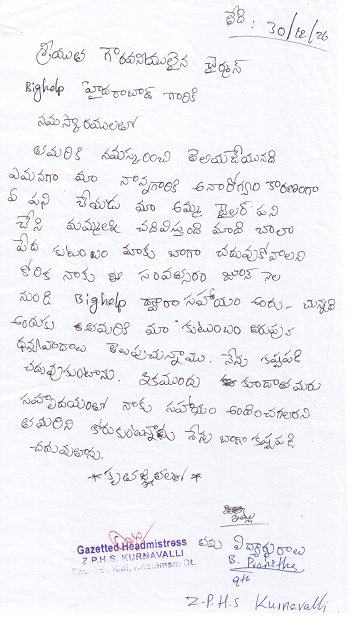 తేది : 30/12/20
శ్రీయుత గౌరవనీయులైన ఛైర్మన్
Bighelp హైదరాబాద్ గారికి
నమస్కారములతో
తమరికి నమస్కరించి తెలియజేయునది
ఏమనగా మా నాన్నగారికి అనారోగ్యం కారణంగా
ఏ పని చేయడు మా అమ్మ టైలర్ పని
చేసి మమ్ములను చదివిస్తుంది మాది చాలా
పేద కుటుంబం మాకు బాగా చదువుకోవాలని
కోరిక నాకు ఈ సంవత్సరం జూన్ నెల
నుండి Bighelp ద్వారా సహాయం అందు-చున్నది
అందుకు తమరికి మా కుటుంబం తరుపున
ధన్యవాదాలు తెలుపుచున్నాము. నేను కష్టపడి
చదువుకుంటాను. ఇకముందు కూడా తమరు
సహృదయంతో నాకు సహాయం అందించగలరని
తమరిని కోరుకుంటున్నాను నేను బాగా కష్టపడి
చదువుతాను.
* కృతజ్ఞతలతో *
ఇట్లు
తమ విద్యార్థురాలు
Gazetted Headmistress
Z P.H.S. KURNAVALLI
Khammam Dt.
B.
9th
Z.P.H.S Kurnavalli